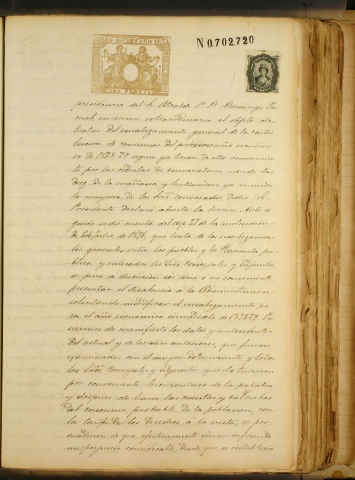 N 0.702.720
presidencia del Sr. Alcalde 1º D. Domingo
en sesion extraordinaria al objeto de
tratar del encabezamiento general de la contri
bucion de consumos del próximo año económi
co de 1878 79 segun ya tienen de ello conocimien
to por las cédulas de convocatoria, siendo las
diez de la mañana y hallandose ya reunida
la mayoria de los Sres convocados, dicho Sr.
Presidente declaró abierta la sesion. Acto se
guido se dió cuenta del cap. de la instruccion
de 24 Julio de 1876, que trata de los encabezamien
tos generales entre los pueblos y la Hacienda pu
blica, y enterados los Sres Concejales y
se puso a discusion si era o no conveniente
presentar el desahucio a la Administracion
solicitando modificar el encabezamiento pa
ra el año económico inmediato de 1878 79. Se
pusieron de manifiesto los datos y antecedentes
del actual y de los años anteriores, que fueron
examinados con el mayor detenimiento, y todos
los Sres Concejales y que lo tuvieron
por conveniente hicieron uso de la palabra
y despues de hacer las cuentas y calculos
del consumo probable de la poblacion, con
la tarifa de los derechos a la vista, se per
suadieron de que efectivamente viene sufriendo
un perjuicio considerable, desde que se estableció